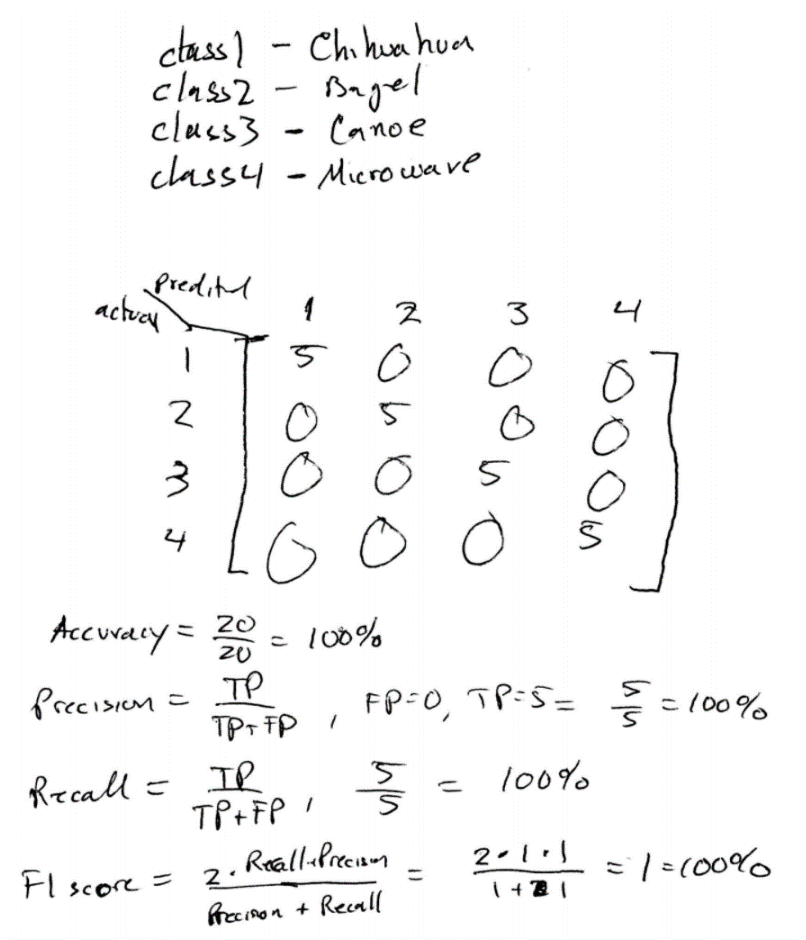 class1 - Chihuahua
class2 - Bagel
class3 - Canoe
class4 - Microwave
Predited
actual 1 2 3 4
1 5 0 0 0
2 0 5 0 0
3 0 0 5 0
4 0 0 0 5
Accuracy = 20/20 = 100%
Precision = TP/TP+FP, FP=0, TP=5 = 5/5 = 100%
Recall = TP/TP+FP, 5/5 = 100%
F1 score = 2·Recall·Precison/Precison + Recall = 2·1·1/1+1 = 1 = 100%